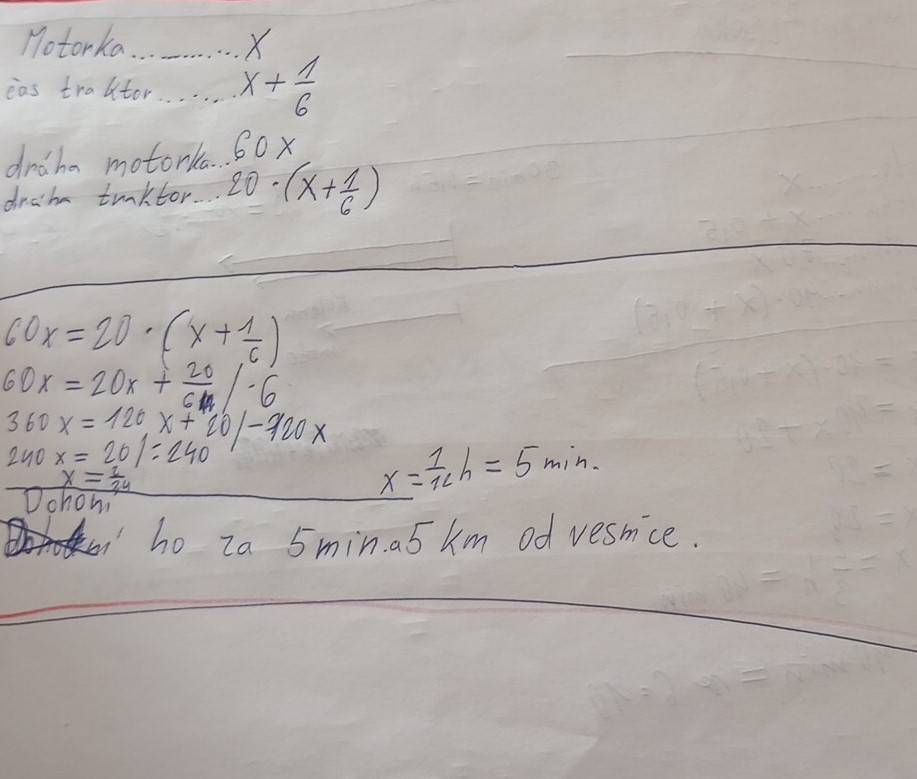 Motorka.............X
čas traktor.......X + 1/6
dráha motorka...60x
dráha traktor....20 · (x + 1/6)
60x = 20 · (x + 1/6)
60x = 20x + 20/6 / · 6
360x = 120x + 20 / -120x
240x = 20 / : 240
x = 2/24
x = 1/12 h = 5 min.
Dohoní
ho za 5min. a 5 km od vesnice.